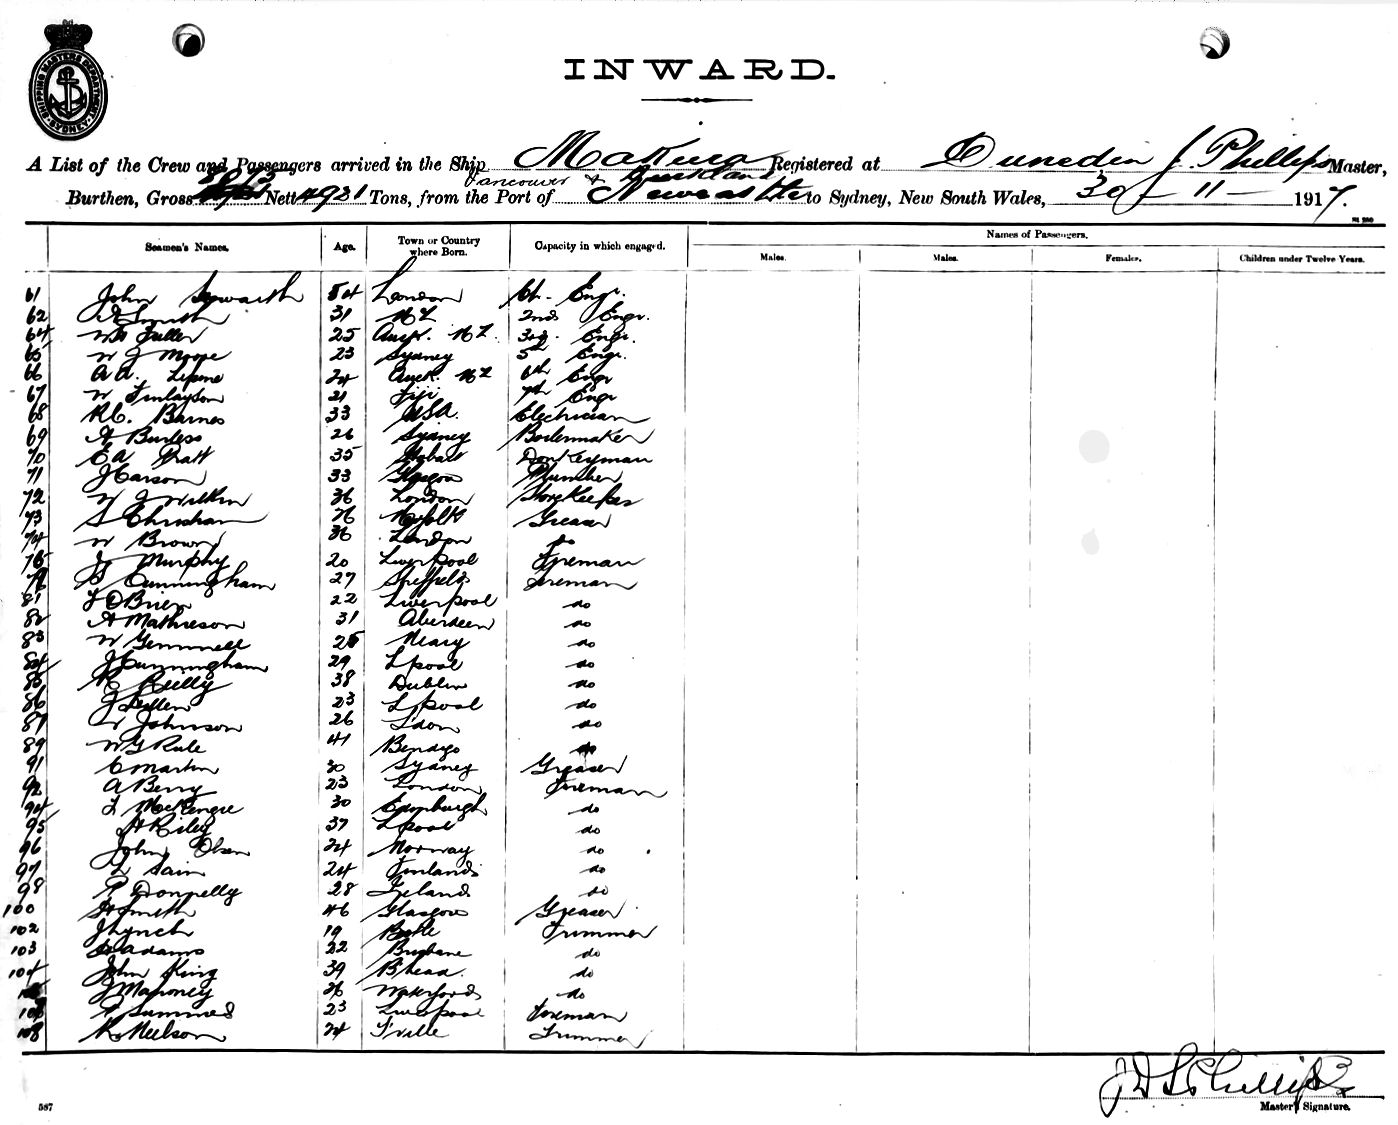 SHIPPING MASTERS DEPARTMENT SYDNEY
INWARD.
A List of the Crew and Passengers arrived in the Ship Makura Registered at Dunedin J Phillips Master,
Vancouver & Auckland
Burthen, Gross Nett 4921 Tons, from the Port of Newcastle to Sydney, New South Wales, 30 - 11 - 1917.
Seamen's Names. Age. Town or Country where Born. Capacity in which engaged. Names of Passengers.
Males. Males. Females. Children under Twelve Years.
61 John 54 London Ch. Engr.
62 Smith 31 NZ 2nd Engr.
64 WH Fuller 25 Auck. NZ. 3rd. Engr.
65 W J Moore 23 Sydney 5th Engr.
66 A A. 24 Auck. NZ 6th Engr
67 W Finlayson 21 Fiji 7th Engr
68 R.C. Barnes 33 USA. Electrician
69 A Burless 26 Sydney Boilermaker
70 E A Pratt 35 Hobart Donkeyman
71 J Carson 33 Glasgow Plumber
72 W J Wilkin 36 London Storekeeper
73 S 26 Norfolk Greaser
74 W Brown 36 London do
76 J Murphy 20 Liverpool Fireman
79 Cunningham 27 Sheffield Fireman
81 J O'Brien 22 Liverpool do
82 A Mathieson 31 Aberdeen do
83 W Gemmell 25 do
84 J Cunningham 29 L'pool do
85 R Reilly 38 Dublin do
86 J 23 L'pool do
87 W Johnson 26 L'don do
89 W G Rule 41 Bendigo do
91 C Martin 30 Sydney Greaser
92 A Berry 23 London Fireman
94 J MacKenzie 30 Edinburgh do
95 H Riley 37 L'pool do
96 John Olsen 24 Norway do
97 L Sain 24 Finland do
98 P Donnelly 28 Ireland do
100 H Smith 46 Glasgow Greaser
102 J Lynch 19 Bootle Trimmer
103 Adams 22 Brisbane do
104 John King 39 B'head. do
J Mahoney 26 Waterford do
23 Liverpool Fireman
108 R Neilson 24 T'ville Trimmer
J D S Phillips
587 Master's Signature.